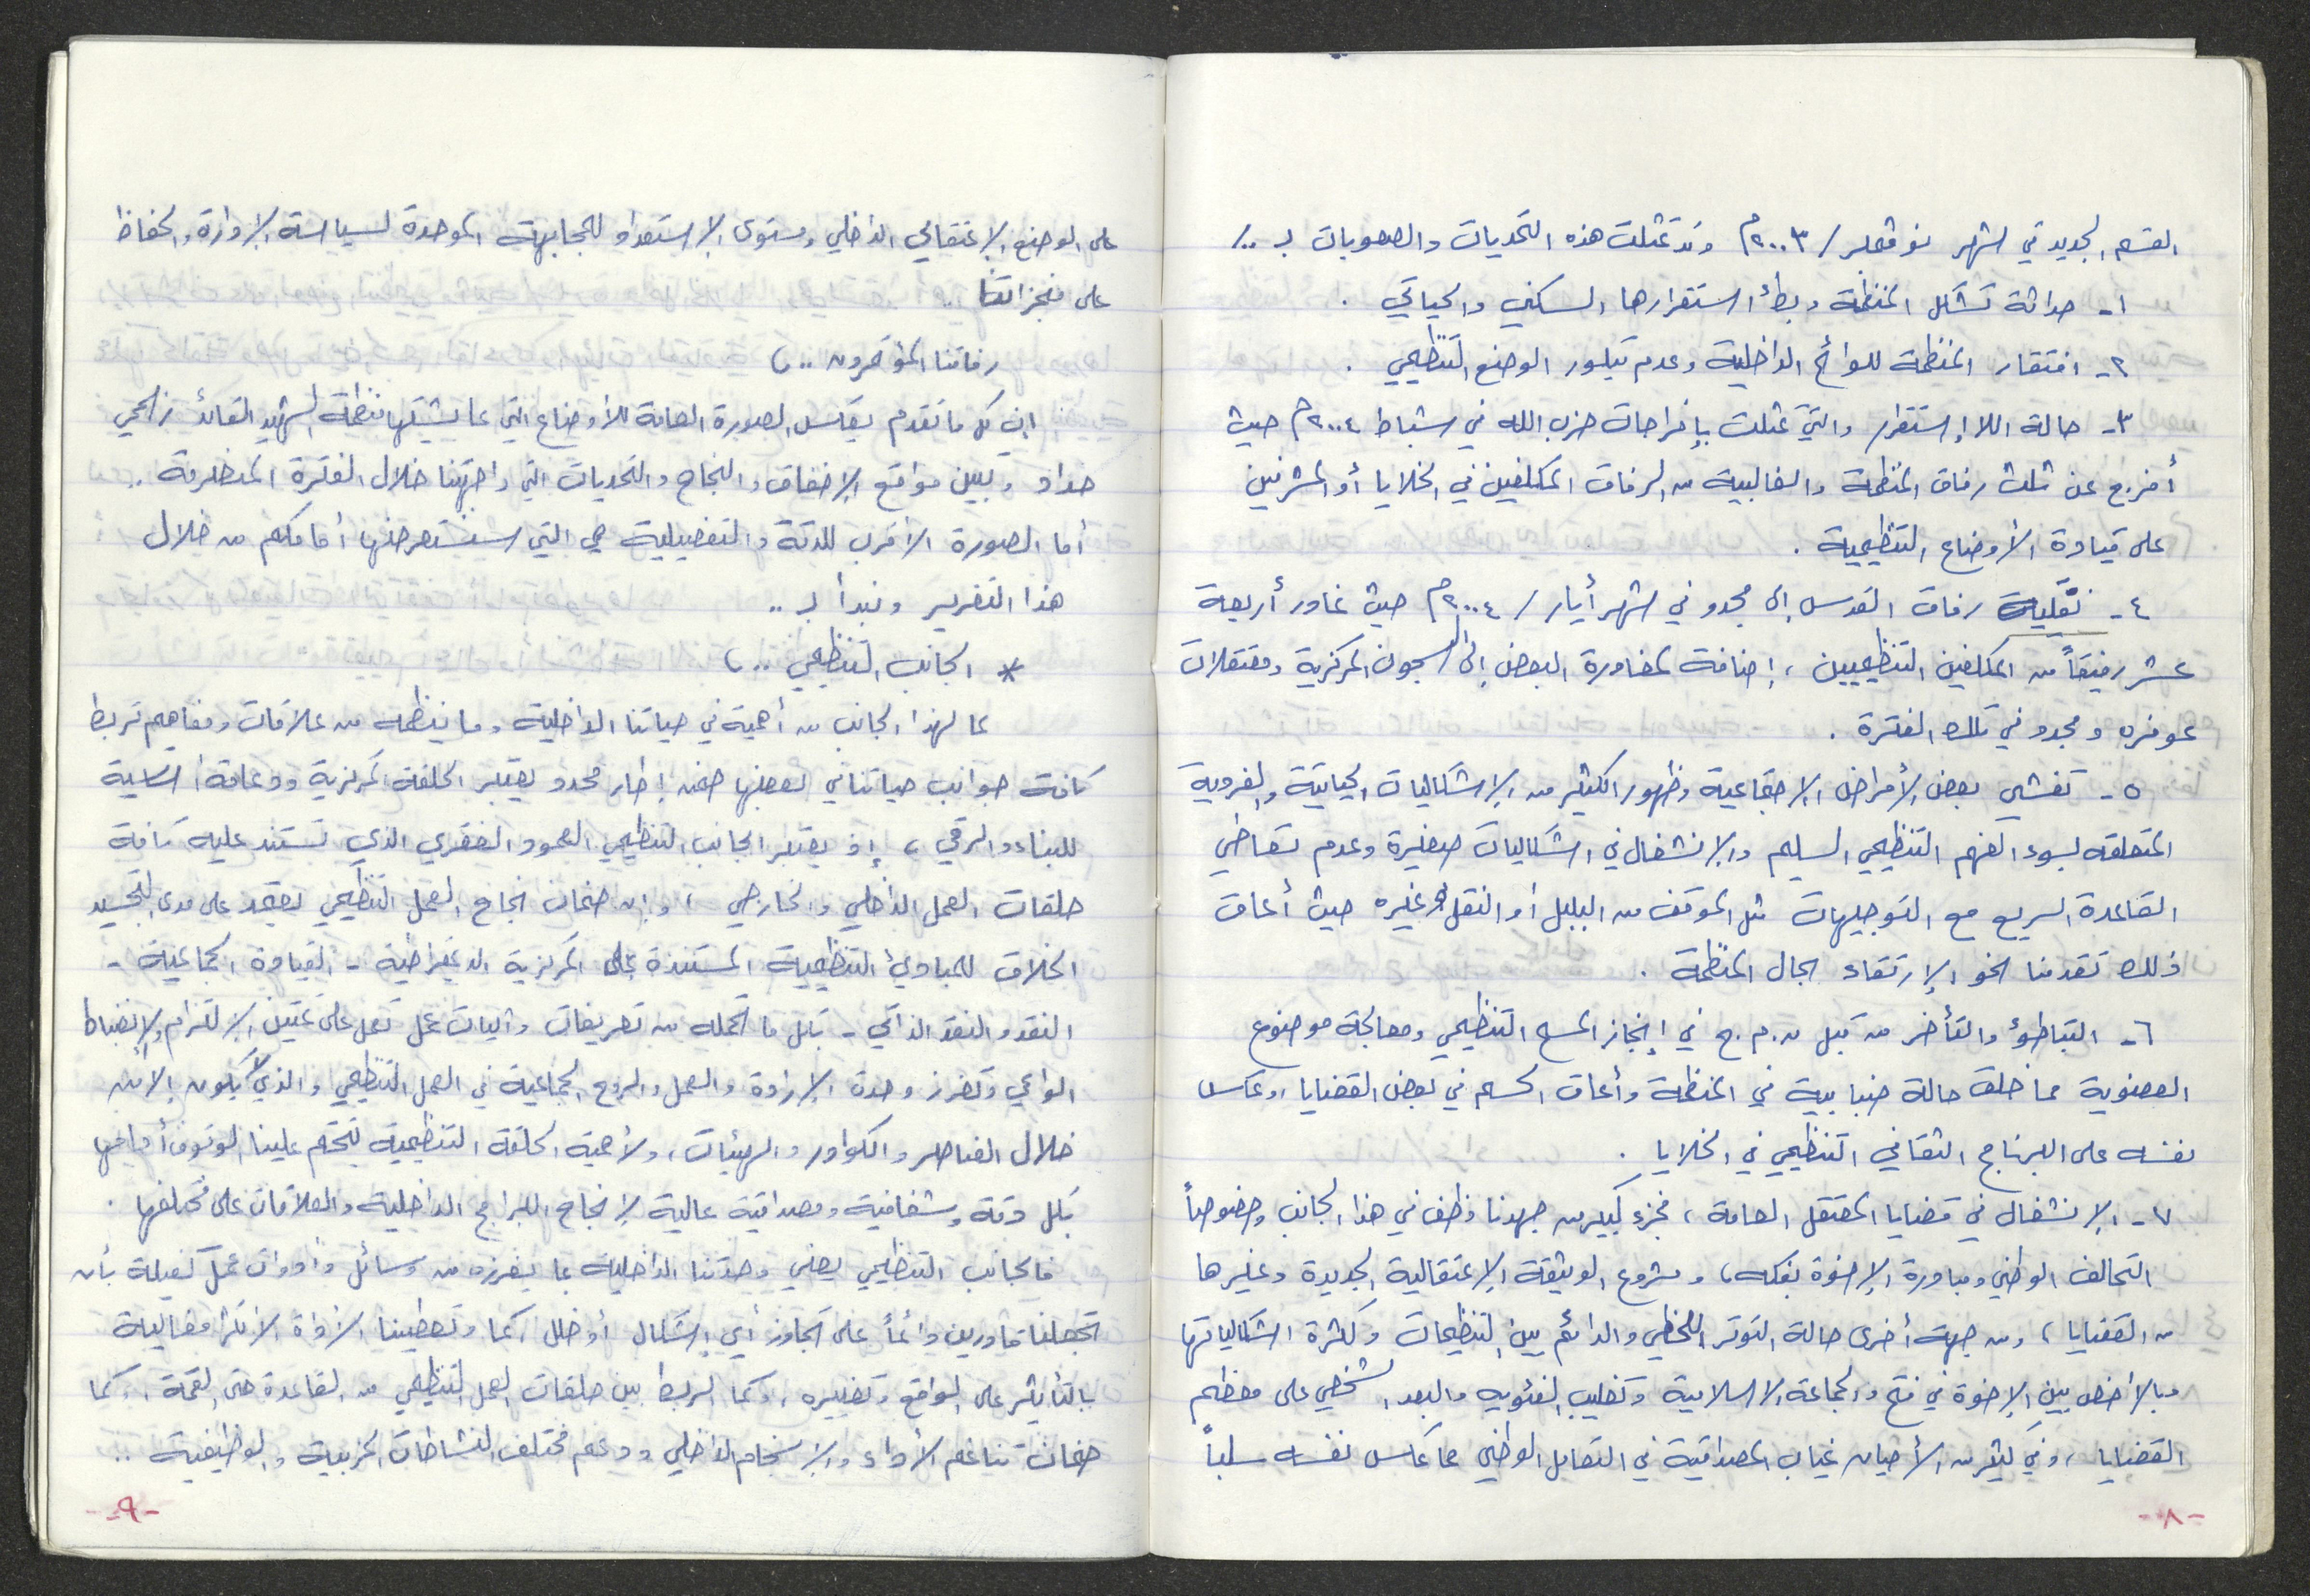 القسم الجديد في شهر نوفمبر / ٢٠٠٣م وقد تمثلت هذه التحديات والصعوبات بـ ../
١- حداثة تشكل المنظمة وبطأ استقرارها السكني والحياتي .
٢- افتقار المنظمة للوائح الداخلية وعدم تبلور الوضع التنظيمي .
٣- حالة اللا إستقرار والتي تمثلت بإفراجات حزب الله في شباط ٢٠٠٤م حيث
أفرج عن ثلث رفاق المنظمة والغالبية من الرفاق المكلفين في الخلايا أو المشرفين
على قيادة الأوضاع التنظيمية .
٤- نقليات رفاق القدس إلى مجدو في شهر أيار / ٢٠٠٤م حيث غادر أربعة
عشر رفيقاً من المكلفين التنظيميين ، إضافة لمغادرة البعض إلى السجون المركزية ومعتقلات
عوفره ومجدو في تلك الفترة .
٥- تفشي بعض الأمراض الإجتماعية وظهور الكثير من الإشكاليات الحياتية والفردية
المتعلقة بسوء الفهم التنظيمي السليم والإنشغال في اشكاليات صغيرة وعدم تعاطي
القاعدة السريع مع التوجيهات مثل الموقف من البلبل أو النقل وغيره حيث أعاق
ذلك تقدمنا نحو الإرتقاء بحال المنظمة .
٦- التباطؤ والتأخر من قبل م.م.ج في إنجاز المسح التنظيمي ومعالجة موضوع
العضوية مما خلق حالة ضبابية في المنظمة وأعاق الحسم في بعض القضايا ، وعكس
نفسه على البرنامج الثقافي التنظيمي في الخلايا .
٧- الإنشغال في قضايا المعتقل العامة ، فجزء كبير من جهدنا وظف في هذا الجانب وخصوصاً
التحالف الوطني ومبادرة الإخوة بفكه ، ومشروع الوثيقة الإعتقالية الجديدة وغيرها
من القضايا ، ومن جهة أخرى حالة التوتر اللحظي والدائم بين التنظيمات وكثرة اشكالياتها
وبالأخص بين الإخوة في فتح والجماعة الاسلامية وتغليب الفئويه والبعد الشخصي على معظم
القضايا ، وفي كثير من الأحيان غياب المصداقية في التعامل الوطني مما عكس نفسه سلباً
-٨-
على الوضع الإعتقالي الداخلي ومستوى الإستعداد للمجابهة الموحدة لسياسة الإدارة والحفاظ
على منجزاتنا ..
رفاقنا المؤتمرون .. ،
إن كل ما تقدم يعكس الصورة العامة للأوضاع التي عايشتها منظمة الشهيد القائد زلمي
حداد وتبين مواقع الإخفاق والنجاح والتحديات التي واجهتنا خلال الفترة المنصرمة ..
أما الصورة الأقرب للدقة والتفصيلية هي التي سنستعرضها أمامكم من خلال
هذا التقرير ونبدأ بـ ..
* الجانب التنظيمي .. ،
لما لهذا الجانب من أهمية في حياتنا الداخلية وما ينظمه من علاقات ومفاهيم تربط
كافة جوانب حياتنا في بعضها ضمن إطار محدد يعتبر الحلقة المركزية ودعامة اساسية
للبناء والرقي ، إذ يعتبر الجانب التنظيمي العمود الفقري الذي تستند عليه كافة
حلقات العمل الداخلي والخارجي ، وإن ضمان نجاح العمل التنظيمي يعتمد على مدى التجسيد
الخلاق للمبادئ التنظيمية المستندة على المركزية الديمقراطية - القيادة الجماعية -
النقد والنقد الذاتي - بكل ما تحمله من تعريفات وآليات عمل تعمل على تمتين الإلتزام والإنضباط
الواعي وتعزز وحدة الإرادة والعمل والروح الجماعية في العمل التنظيمي والذي لا يكون إلا من
خلال العناصر والكوادر والهيئات ، ولأهمية الحلقة التنظيمية يتحتم علينا الوقوف أمامها
بكل دقة وشفافية ومصداقية عالية لإنجاح البرامج الداخلية والعلاقات على مختلفها .
فالجانب التنظيمي يعني وحدتنا الداخلية بما يفرزه من وسائل وأدوات عمل كفيلة بأن
تجعلنا قادرين دائماً على تجاوز أي إشكال أو خلل ، كما وتعطينا الأداة الأكثر فعالية
بالتأثير على الواقع وتغييره ، وكما الربط بين حلقات العمل التنظيمي من القاعدة حتى القمة ، وكما
ضمان تناغم الأداء والإنسجام الداخلي ودعم مختلف النشاطات الحزبية والوظيفية ..
-٩-